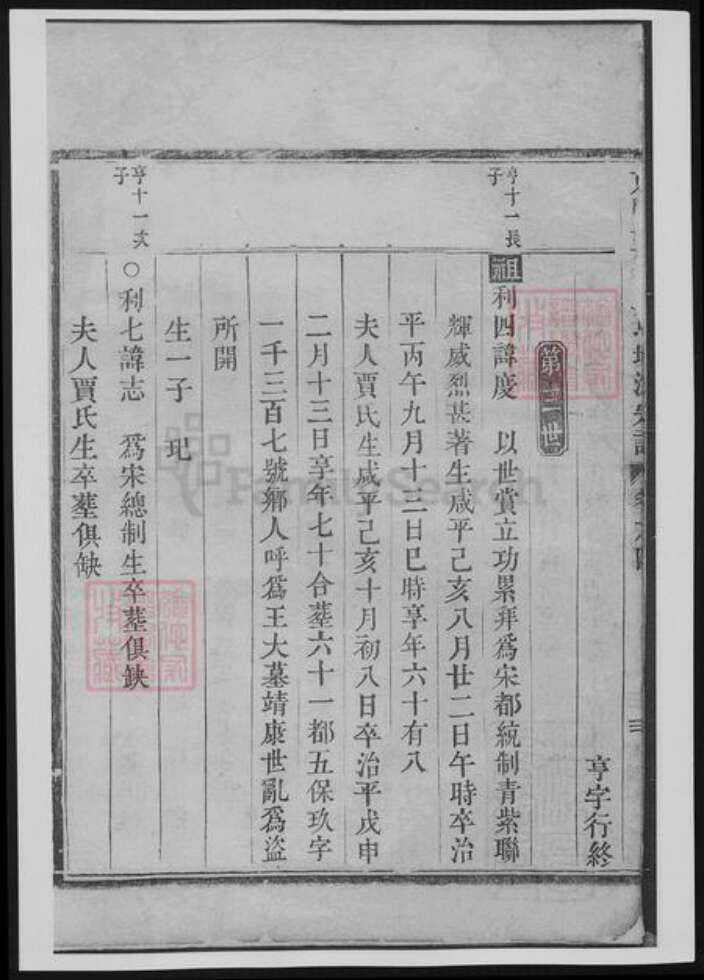 亨字行終
第三世
亨十一長子
祖利四諱度　以世賞立功累拜爲宋都統制青紫聯
輝威烈甚著生咸平己亥八月廿二日午時卒治
平丙午九月十三日巳時享年六十有八
夫人賈氏生咸平己亥十月初八日卒治平戊申
二月十三日享年七十合塟六十一都五保玖字
一千三百七號鄉人呼爲王大墓靖康世亂爲盜
所開
生一子　玘
亨十一次子
○利七諱志　爲宋總制生卒塟俱缺
夫人賈氏生卒塟俱缺
FamilySearch